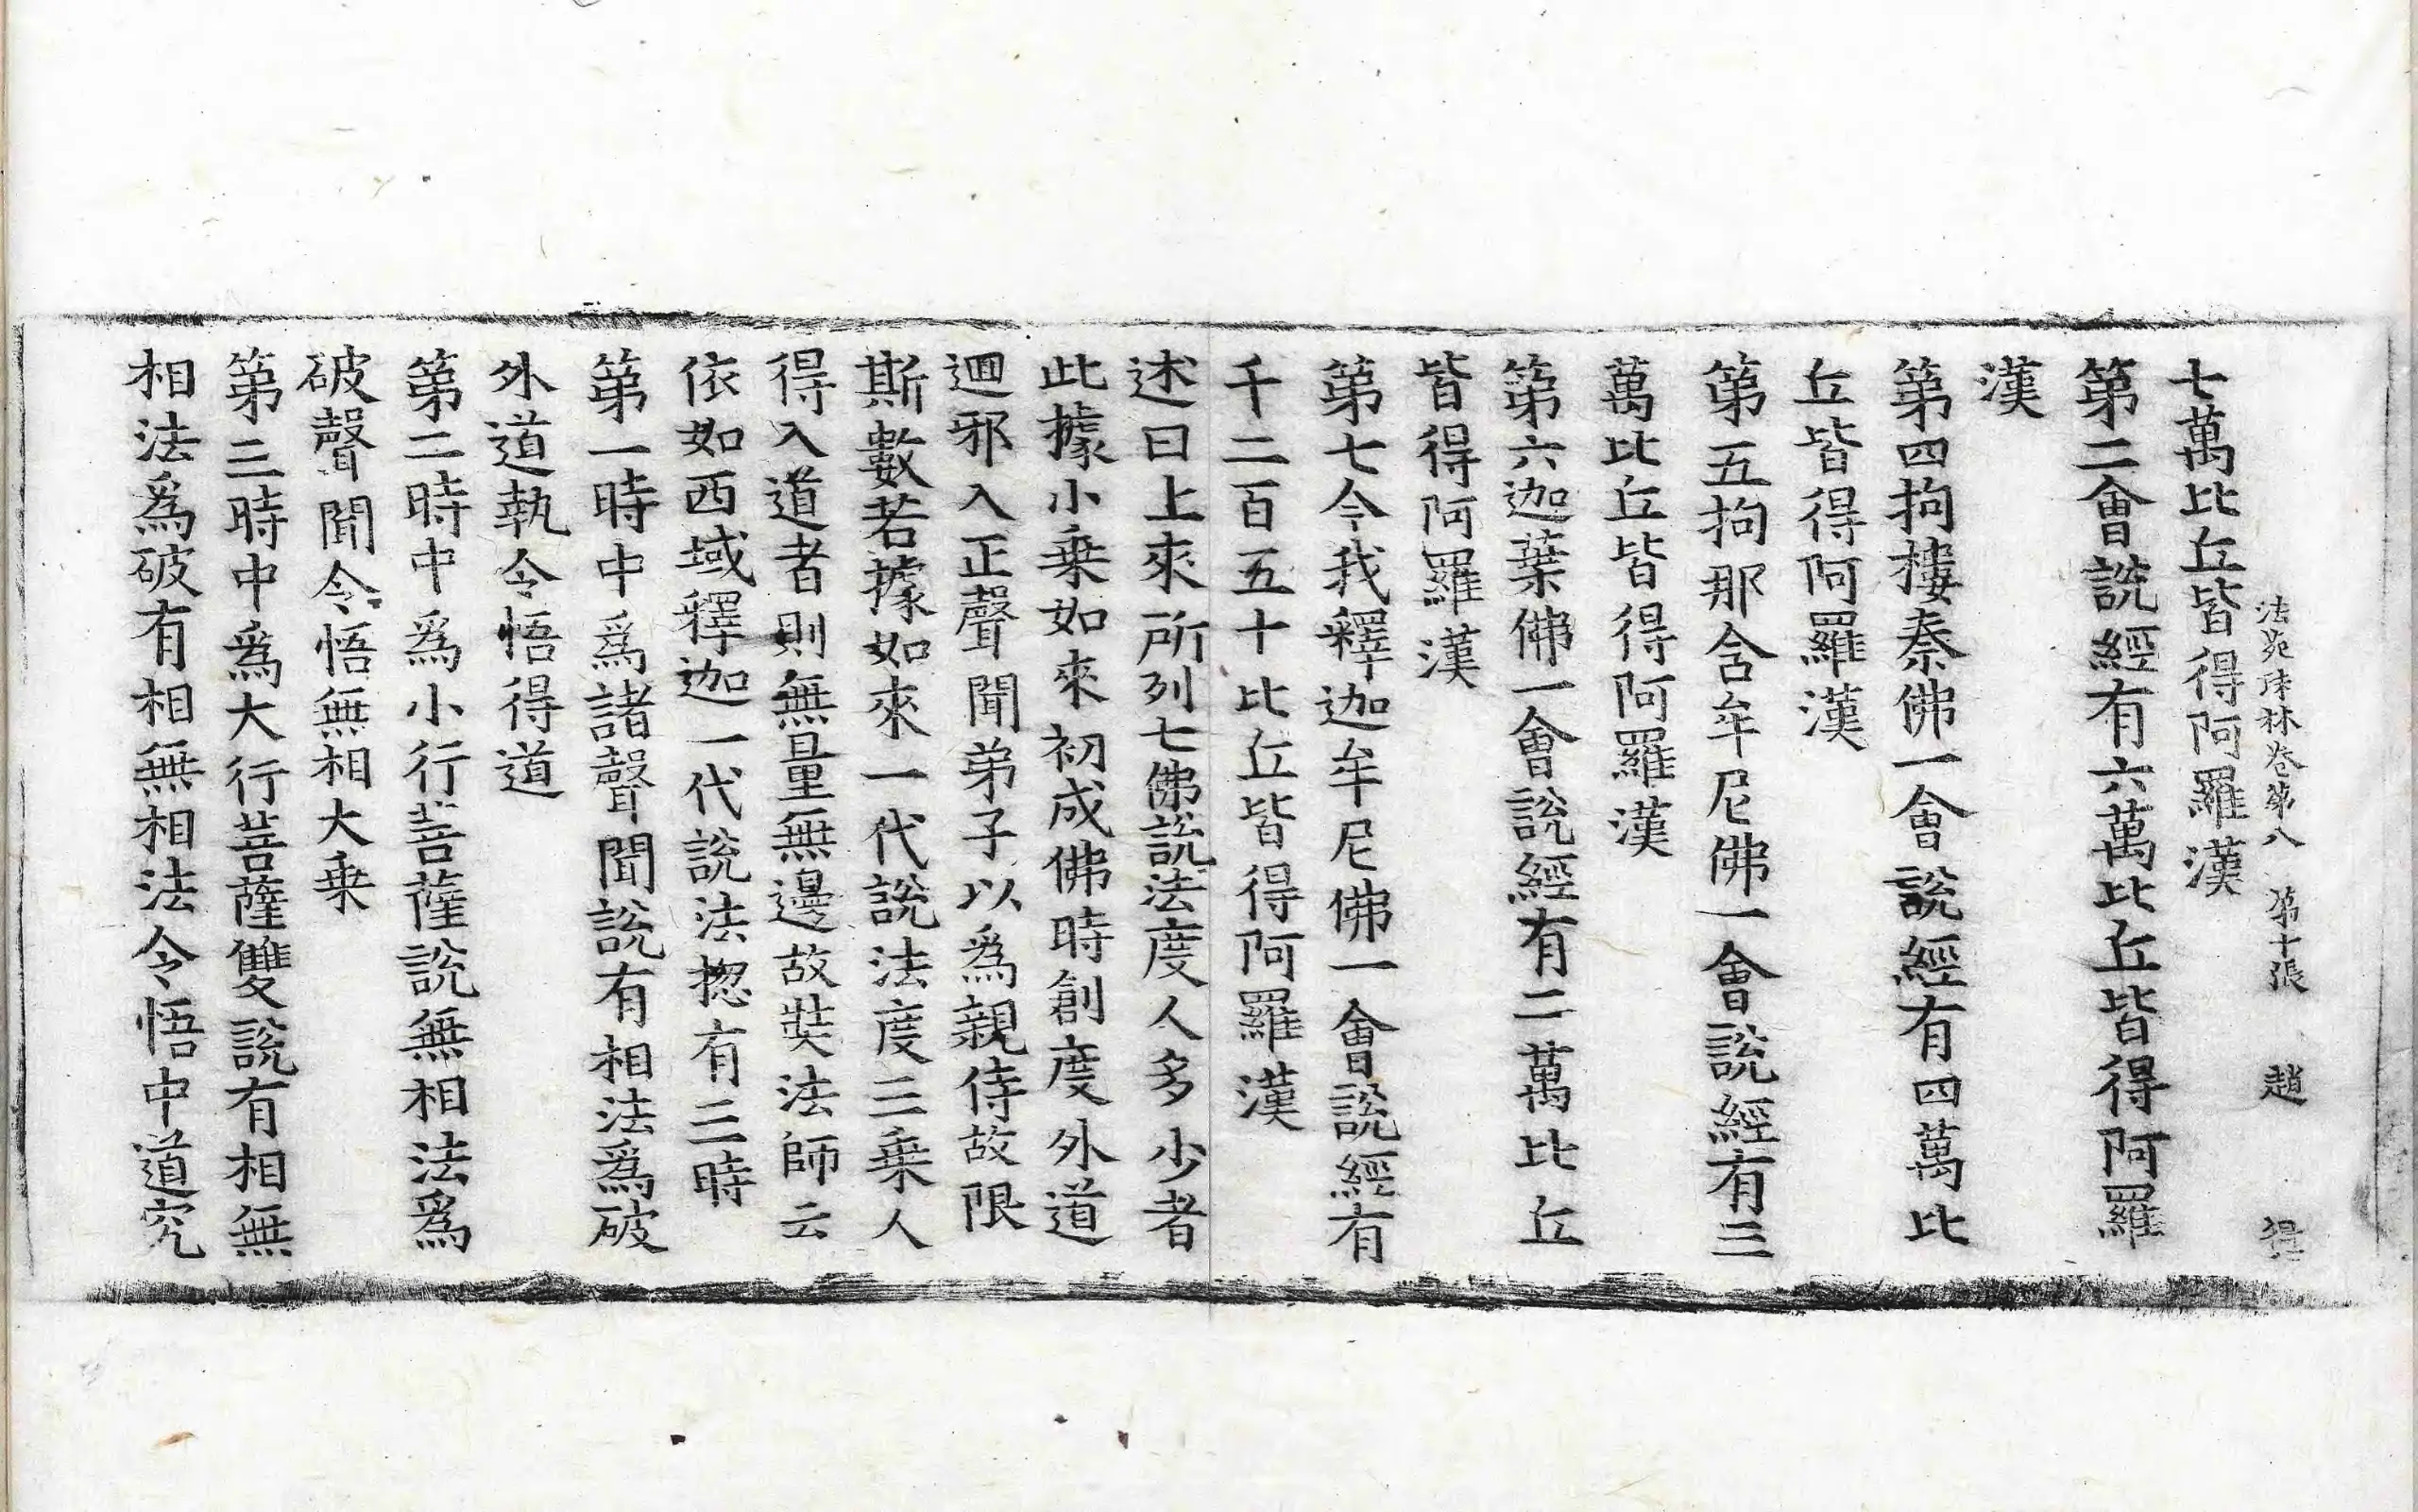 法苑珠林卷第八　第十張　趙
七萬比丘皆得阿羅漢
第二會說經有六萬比丘皆得阿羅
漢
第四拘樓秦佛一會說經有四萬比
丘皆得阿羅漢
第五拘那含牟尼佛一會說經有三
萬比丘皆得阿羅漢
第六迦葉佛一會說經有二萬比丘
皆得阿羅漢
第七今我釋迦牟尼佛一會說經有
千二百五十比丘皆得阿羅漢
述曰上來所列七佛說法度人多少者
此據小乗如來初成佛時創度外道
迴邪入正聲聞弟子以爲親侍故限
斯數若據如來一代說法度三乗人人
得入道者則無量無邊故奘法師云
依如西域釋迦一代說法揔有三時
第一時中爲諸聲聞說有相法爲破
外道執令悟得道
第二時中爲小行菩薩說無相法爲
破聲聞令悟無相大乗
第三時中爲大行菩薩雙說有相無
相法爲破有相無相法令悟中道究